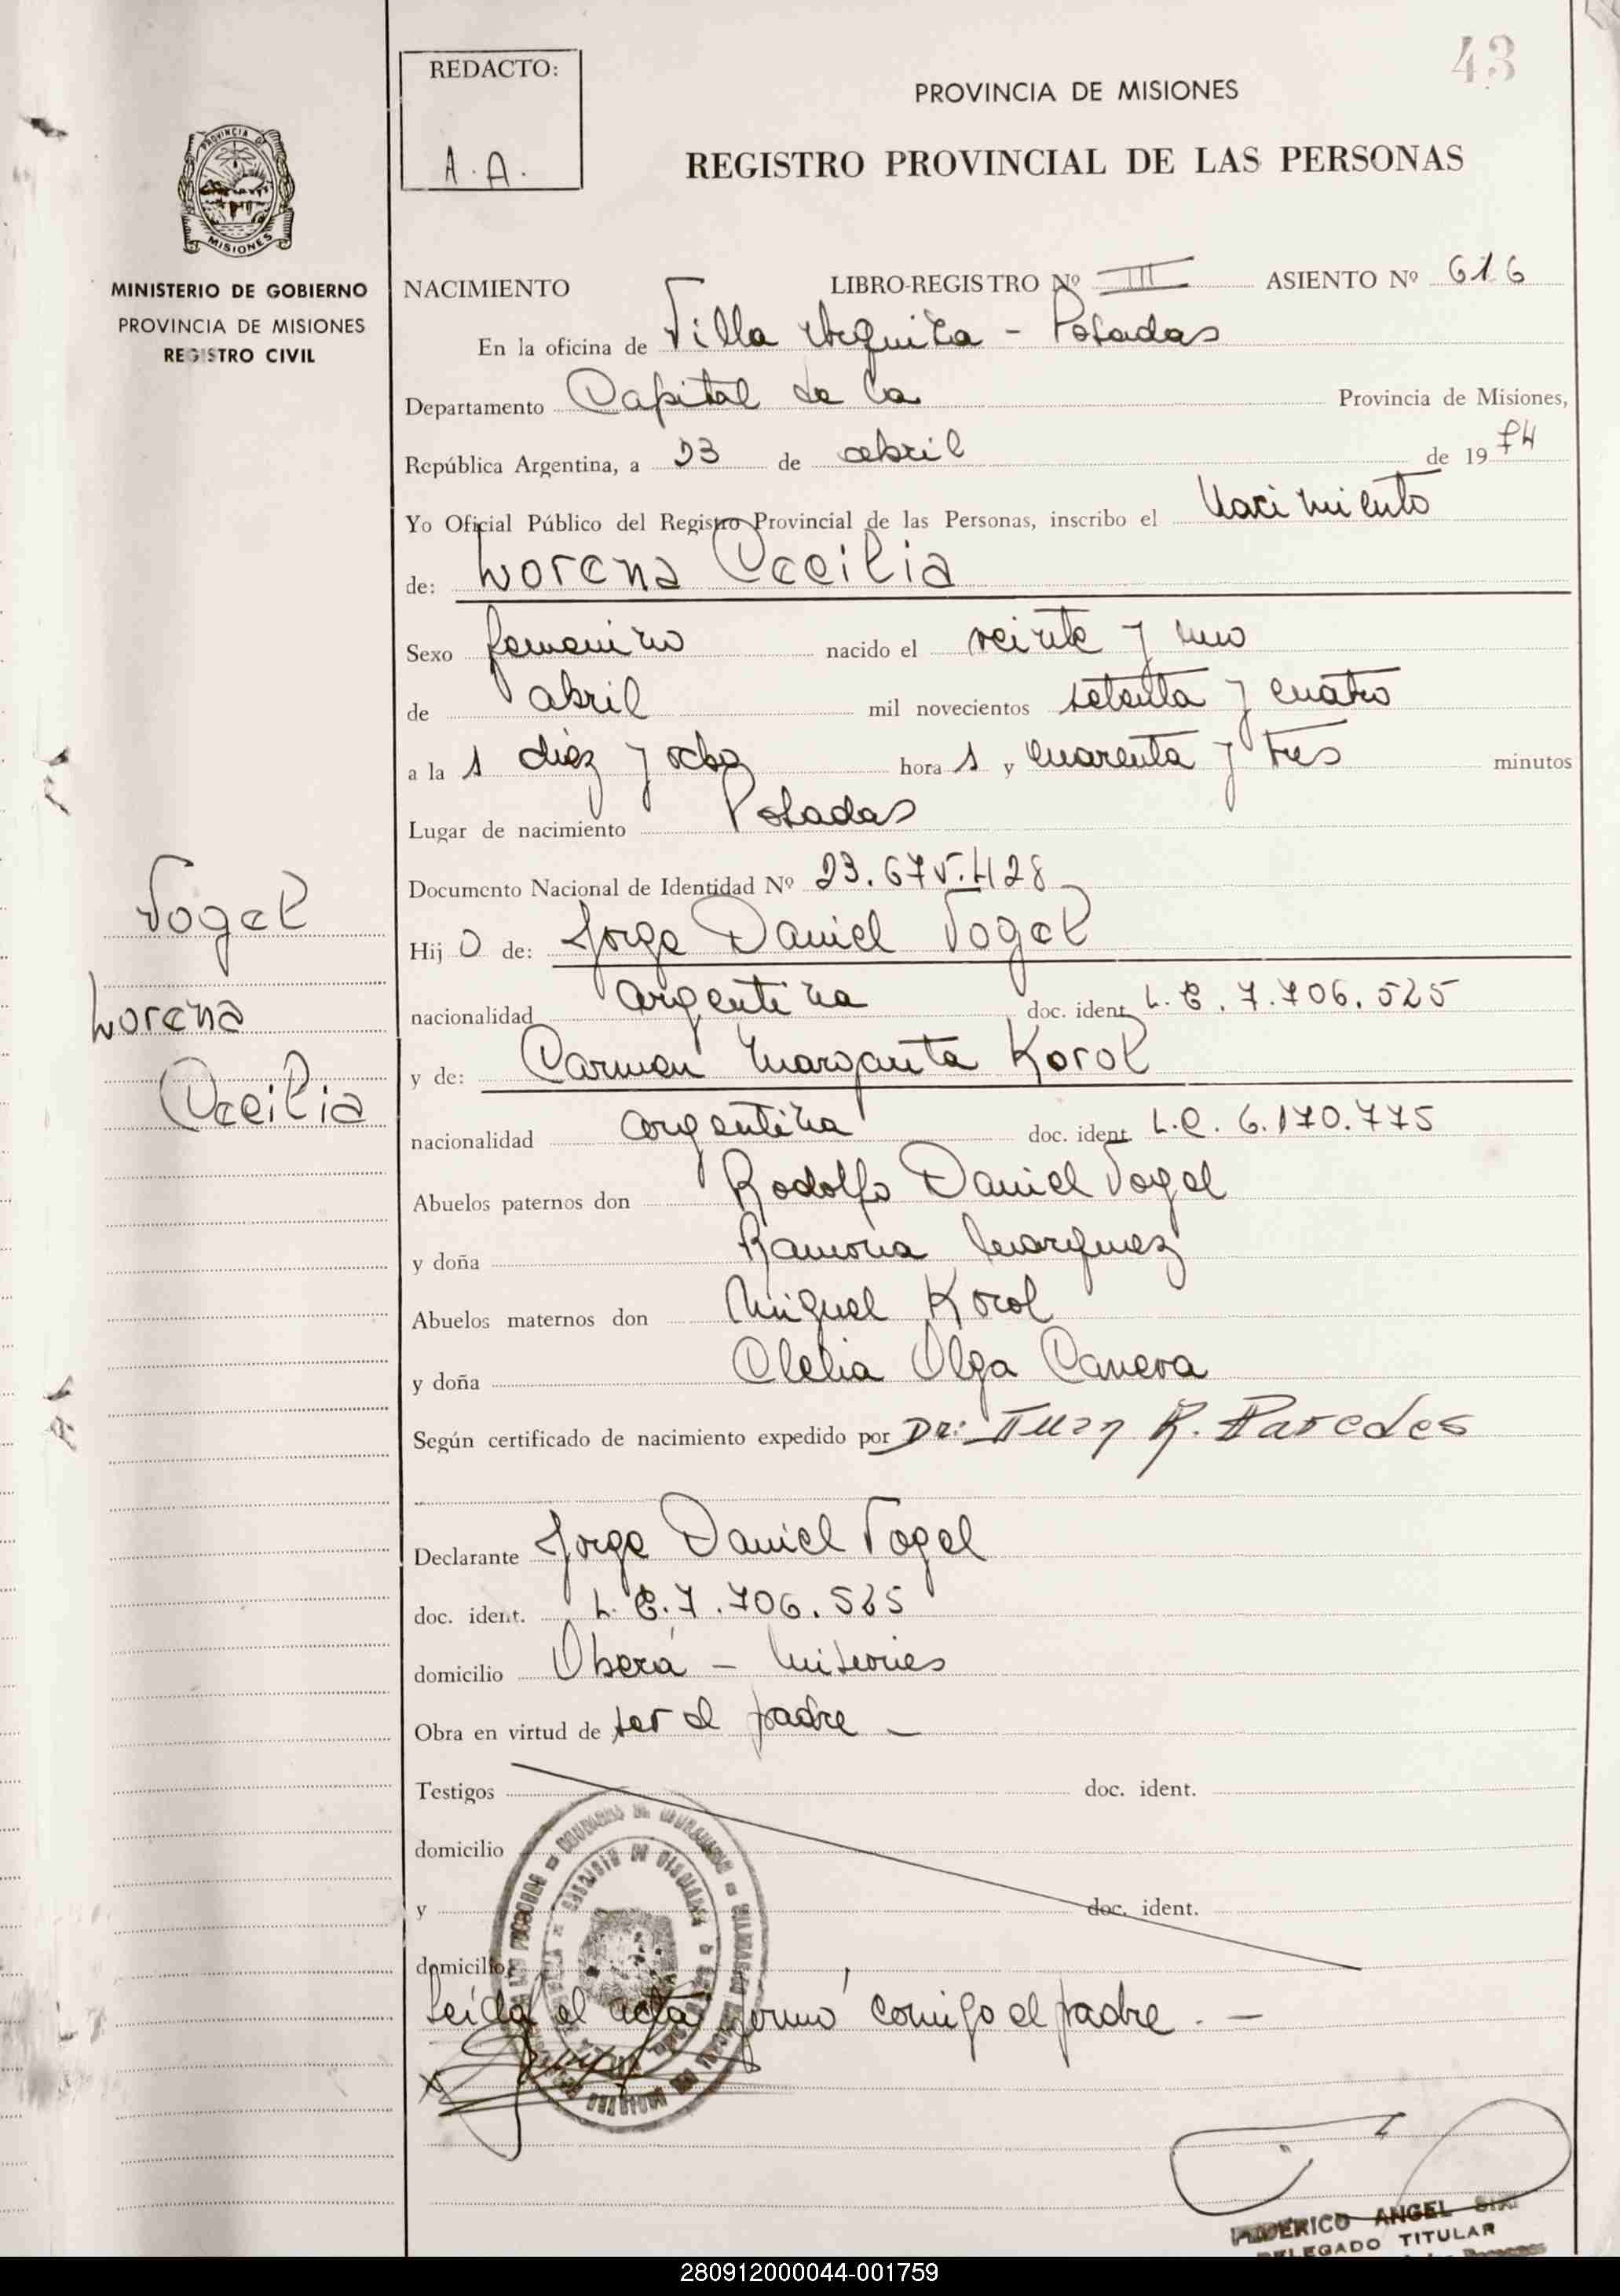 43
REDACTO:
A. A.
PROVINCIA DE MISIONES
REGISTRO PROVINCIAL DE LAS PERSONAS
MISIONES
MINISTERIO DE GOBIERNO
PROVINCIA DE MISIONES
REGISTRO CIVIL
NACIMIENTO LIBRO-REGISTRO Nº III ASIENTO Nº 616
En la oficina de Villa Urquiza - Posadas
Departamento Capital de la Provincia de Misiones,
República Argentina, a 23 de abril de 1974
Yo Oficial Público del Registro Provincial de las Personas, inscribo el Nacimiento
de: Lorena Cecilia
Sexo femenino nacido el veinte y uno
de abril mil novecientos setenta y cuatro
a la s diez y ocho hora s y cuarenta y tres minutos
Lugar de nacimiento Posadas
Documento Nacional de Identidad Nº 23.675.428
Hij a de: Jorge Daniel Vogel
nacionalidad argentina doc. ident. L.E. 7.706.525
y de: Carmen Margarita Korol
nacionalidad argentina doc. ident. L.C. 6.170.775
Abuelos paternos don Rodolfo Daniel Vogel
y doña Ramona Marquez
Abuelos maternos don Miguel Korol
y doña Clelia Olga Canera
Según certificado de nacimiento expedido por Dr: Juan R. Paredes
Declarante Jorge Daniel Vogel
doc. ident. L.E. 7.706.525
domicilio Oberá - Misiones
Obra en virtud de ser el padre -
Testigos doc. ident.
domicilio
y doc. ident.
domicilio
Leída el acta, firmó comigo el padre. -
Vogel
Lorena
Cecilia
FEDERICO ANGEL
DELEGADO TITULAR
280912000044-001759